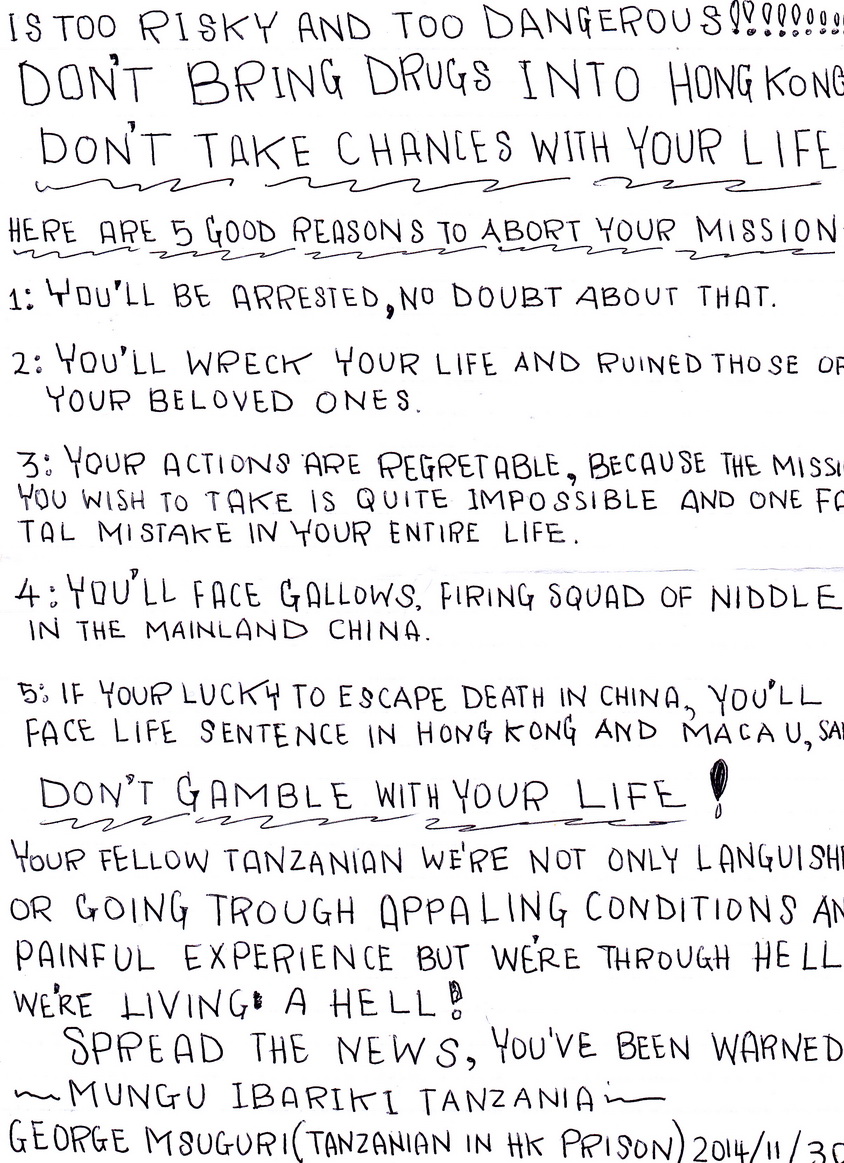 IS TOO RISKY AND TOO DANGEROUS!!!!!!!!!
DON'T BRING DRUGS INTO HONG KONG
DON'T TAKE CHANCES WITH YOUR LIFE
HERE ARE 5 GOOD REASONS TO ABORT YOUR MISSION
1: YOU'LL BE ARRESTED, NO DOUBT ABOUT THAT.
2: YOU'LL WRECK YOUR LIFE AND RUINED THOSE OF
YOUR BELOVED ONES.
3: YOUR ACTIONS ARE REGRETABLE, BECAUSE THE MISSI
YOU WISH TO TAKE IS QUITE IMPOSSIBLE AND ONE FA
TAL MISTAKE IN YOUR ENTIRE LIFE.
4: YOU'LL FACE GALLOWS, FIRING SQUAD OF NIDDLE
IN THE MAINLAND CHINA.
5: IF YOUR LUCKY TO ESCAPE DEATH IN CHINA, YOU'LL
FACE LIFE SENTENCE IN HONG KONG AND MACAU, SA
DON'T GAMBLE WITH YOUR LIFE!
YOUR FELLOW TANZANIAN WE'RE NOT ONLY LANGUISH
OR GOING TROUGH APPALING CONDITIONS AN
PAINFUL EXPERIENCE BUT WE'RE THROUGH HELL
WE'RE LIVING A HELL!
SPREAD THE NEWS, YOU'VE BEEN WARNED
~MUNGU IBARIKI TANZANIA~
GEORGE MSUGURI (TANZANIAN IN HK PRISON) 2014/11/30